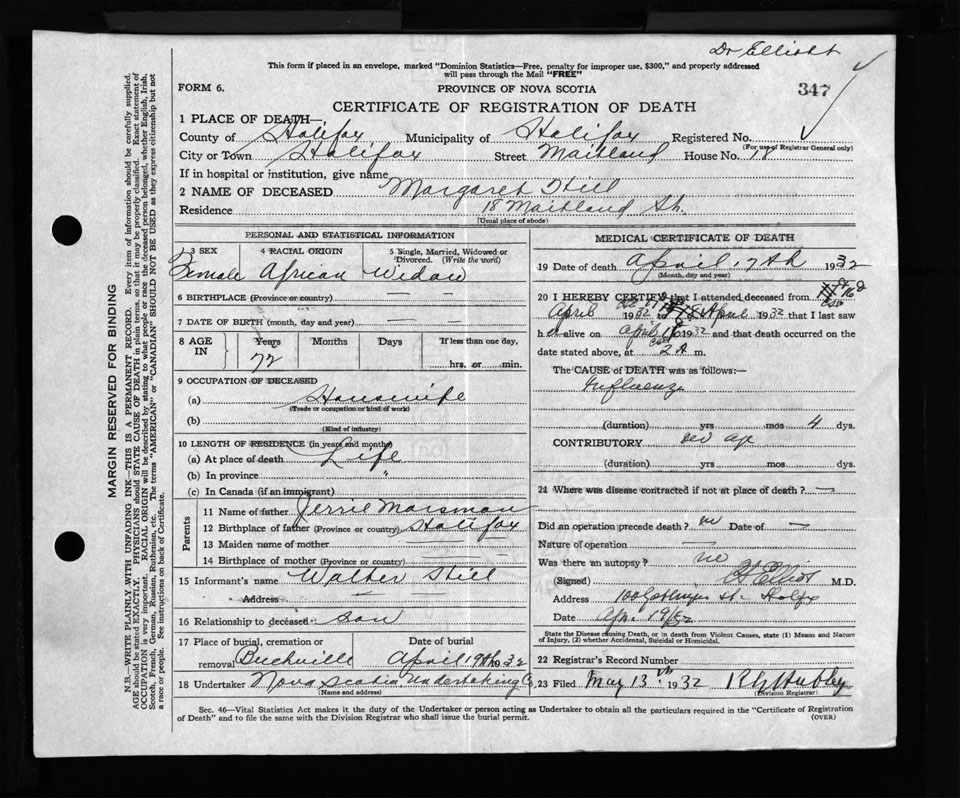 Dr Elliott
This form if placed in an envelope, marked "Dominion Statistics—Free, penalty for improper use, $300," and properly addressed
will pass through the Mail "FREE"
FORM 6. PROVINCE OF NOVA SCOTIA 347
CERTIFICATE OF REGISTRATION OF DEATH
1 PLACE OF DEATH—
County of Halifax Municipality of Halifax Registered No.
(For use of Registrar General only)
City or Town Halifax Street Maitland House No. 18
If in hospital or institution, give name
2 NAME OF DECEASED Margaret Hill
Residence 18 Maitland St.
(Usual place of abode)
PERSONAL AND STATISTICAL INFORMATION
3 SEX 4 RACIAL ORIGIN 5 Single, Married, Widowed or
Divorced. (Write the word)
Female African Widow
6 BIRTHPLACE (Province or country) —
7 DATE OF BIRTH (month, day and year) —
8 AGE IN Years Months Days If less than one day,
72 hrs. or min.
9 OCCUPATION OF DECEASED
(a) Housewife
(Trade or occupation or kind of work)
(b)
(Kind of industry)
10 LENGTH OF RESIDENCE (in years and months)
(a) At place of death Life
(b) In province "
(c) In Canada (if an immigrant)
Parents
11 Name of father Jerrie Marsman
12 Birthplace of father (Province or country) Halifax
13 Maiden name of mother — —
14 Birthplace of mother (Province or country) — —
15 Informant's name Walter Hill
Address
16 Relationship to deceased: son
17 Place of burial, cremation or Date of burial
removal Buchville April 19th 1932
18 Undertaker Nova Scotia Undertaking Co.
(Name and address)
MEDICAL CERTIFICATE OF DEATH
19 Date of death April 17th 1932
(Month, day and year)
20 I HEREBY CERTIFY that I attended deceased from
April 1932 April 1932 that I last saw
her alive on April 1932 and that death occurred on the
date stated above, at 2 A m.
The CAUSE of DEATH was as follows:
Influenza
(duration) yrs mos 4 dys.
CONTRIBUTORY age
(duration) yrs mos dys.
21 Where was disease contracted if not at place of death? —
Did an operation precede death? no Date of —
Nature of operation —
Was there an autopsy? no
(Signed) Elliott M.D.
Address 100 St. Halifx
Date Apr. 19/32
State the Disease causing Death, or in death from Violent Causes, state (1) Means and Nature
of Injury, (2) whether Accidental, Suicidal or Homicidal.
22 Registrar's Record Number
23 Filed May 13th 1932 Hubley
(Division Registrar)
Sec. 46—Vital Statistics Act makes it the duty of the Undertaker or person acting as Undertaker to obtain all the particulars required in the "Certificate of Registration
of Death" and to file the same with the Division Registrar who shall issue the burial permit. (OVER)
MARGIN RESERVED FOR BINDING
N.B.—WRITE PLAINLY WITH UNFADING INK—THIS IS A PERMANENT RECORD. Every item of information should be carefully supplied.
AGE should be stated EXACTLY. PHYSICIANS should STATE CAUSE OF DEATH in plain terms, so that it may be properly classified. Exact statement of
OCCUPATION is very important. RACIAL ORIGIN will be described by stating to what people or race the deceased person belonged, whether English, Irish,
Scotch, French, German, Russian, Ruthenian, etc. The terms "AMERICAN" or "CANADIAN" SHOULD NOT BE USED as they express citizenship but not
a race or people. See instructions on back of Certificate.